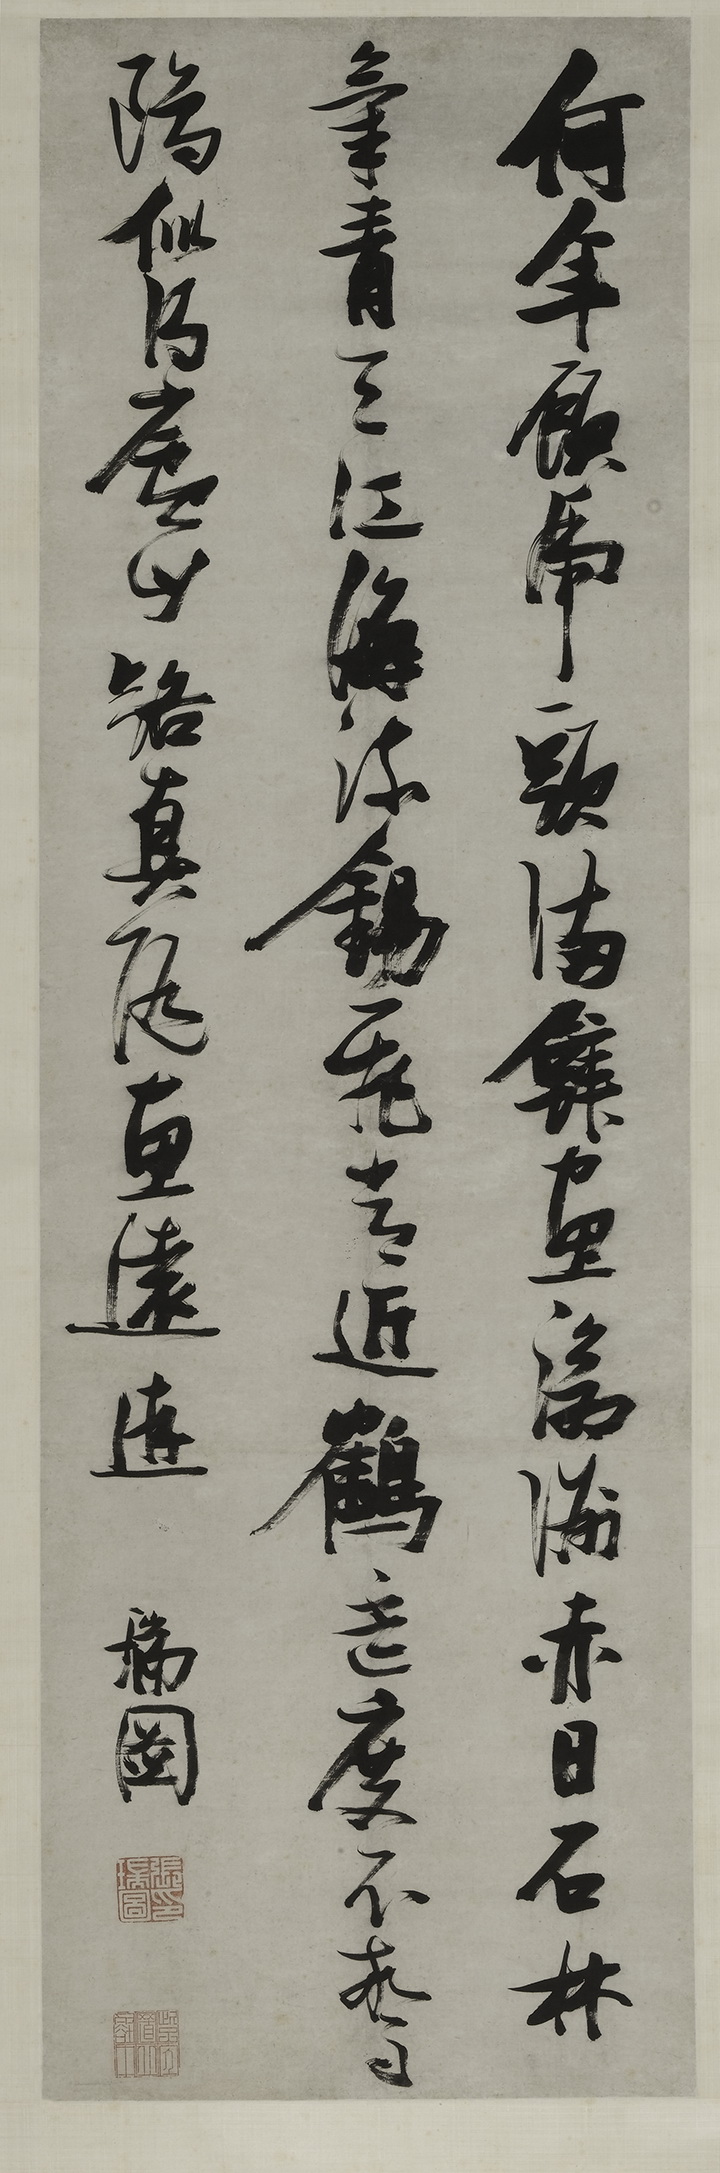 何年顧虎頭滿壁畫滄洲赤日石林
氣青天江海流錫飛常近鶴杯度不驚
鷗似得廬山路真隨惠遠遊 瑞圖
張瑞圖印